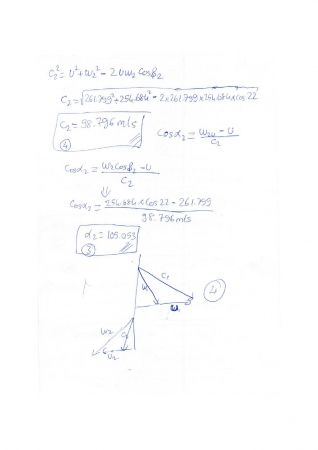 C₂² = U² + W₂² - 2UW₂ Cosβ₂
C₂ = √261.799² + 254.684² - 2×261.799×254.684×Cos 22
C₂ = 98.796 m/s
④
Cosα₂ = W₂u - U / C₂
Cosα₂ = W₂Cosβ₂ - U / C₂
⇓
Cosα₂ = 254.684 × Cos 22 - 261.799 / 98.796 m/s
α₂ = 105.053
③
C₁
W₁
U₁
④
W₂
C₂
U₂